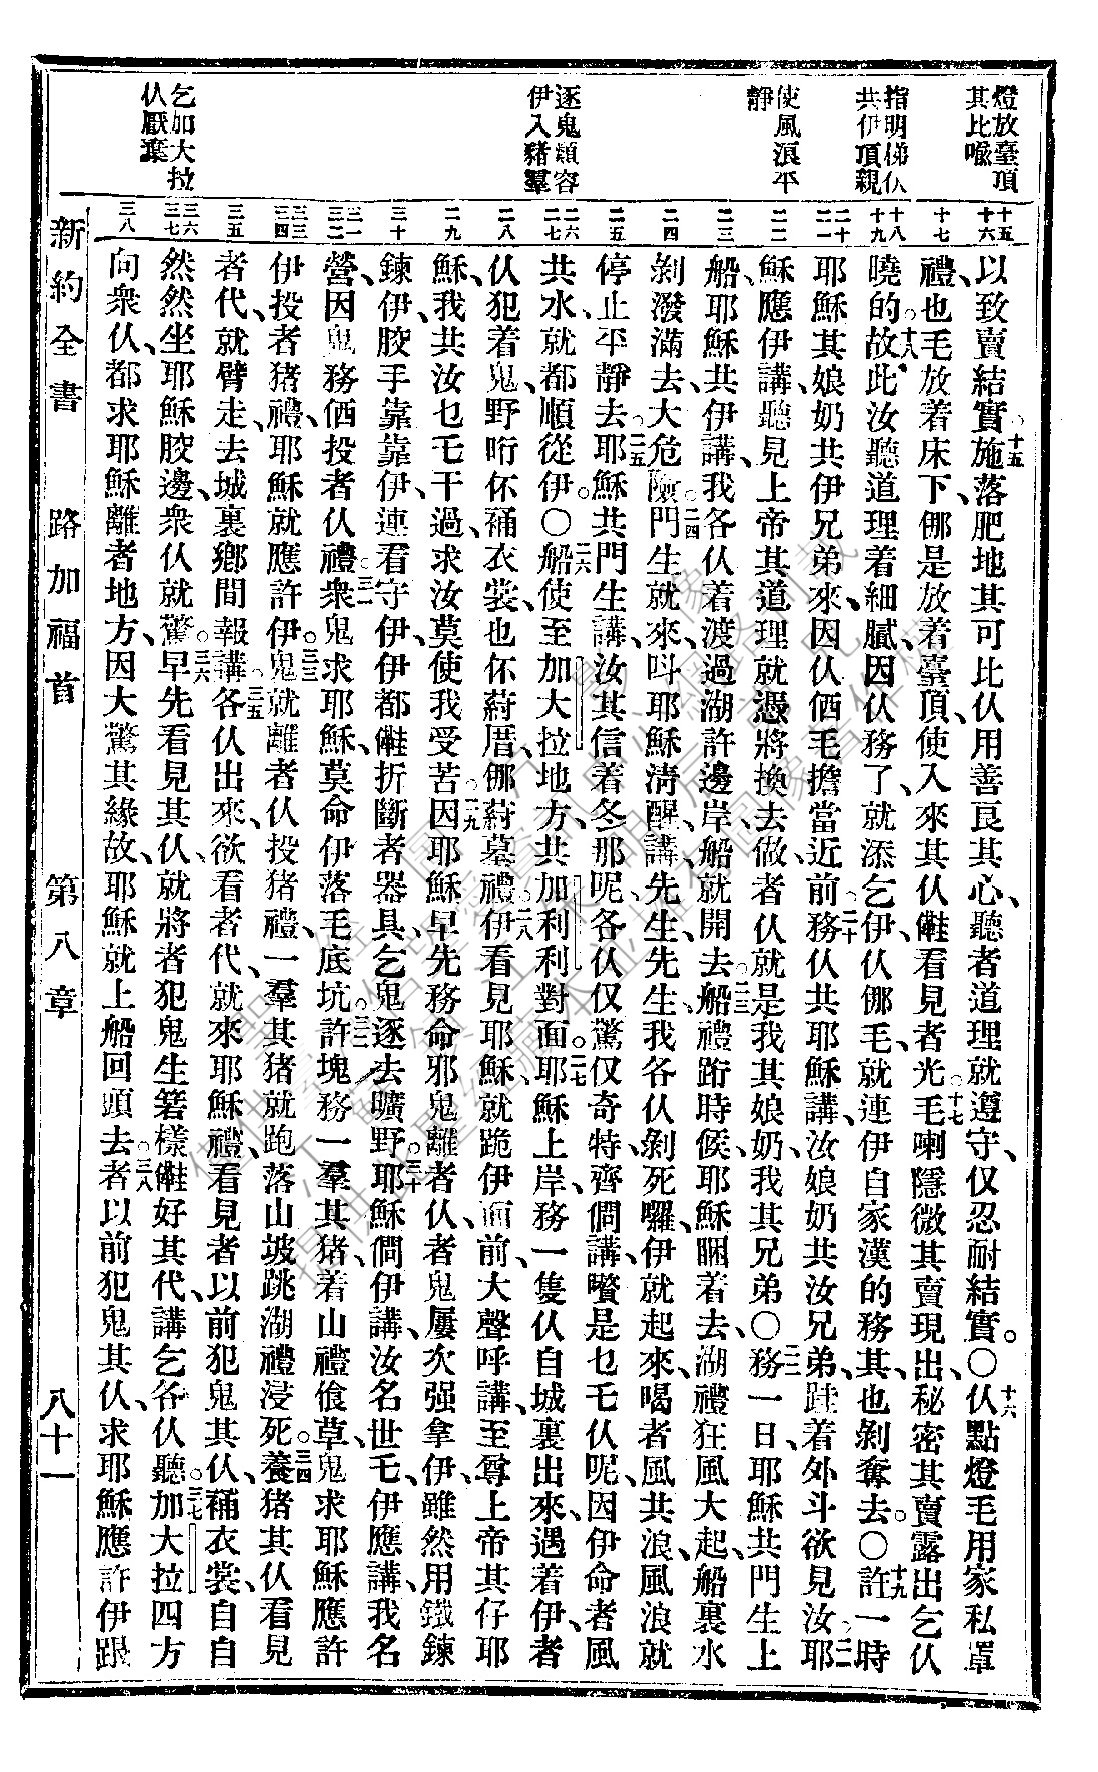 燈放臺頂
其比喩
指明俤仈
共伊頂親
使風浪平
靜
逐鬼類容
伊入豬羣
乞加大拉
仈厭棄
十五
十六
十七
十八
十九
二十
二一
二二
二三
二四
二五
二六
二七
二八
二九
三十
三一
三二
三三
三四
三五
三六
三七
三八
以致賣結實。十五施落肥地其可比仈用善良其心、聽者道理就遵守、仅忍耐結實。〇十六仈點燈毛用家私罩
禮、也毛放着床下、㑚是放着臺頂、使入來其仈、㒰看見者光。十七毛喇隱微其賣現出、秘密其賣露出乞仈
曉的。十八故此汝聽道理着細膩、因仈務了、就添乞伊、仈㑚毛就連伊自家漢的務其、也剝奪去。〇十九許一時
耶穌其娘奶共伊兄弟來、因仈俖毛擔當近前。二十務仈共耶穌講、汝娘奶共汝兄弟、跬着外斗欲見汝。二一耶
穌應伊講、聽見上帝其道理就憑將換去做、者仈就是我其娘奶、我其兄弟。〇二二務一日、耶穌共門生上
船、耶穌共伊講、我各仈着渡過湖許邊岸、船就開去。二三船禮跨時候、耶穌睏着去、湖禮狂風大起、船裏水
剝潑滿去、大危險。二四門生就來呌耶穌淸醒、講、先生、先生、我各仈剝死囉、伊就起來、喝者風共浪、風浪就
停止平靜去。二五耶穌共門生講、汝其信着冬那呢、各仈仅驚仅奇特、齊僩講、㬟是乜乇仈呢、因伊命者風
共水、就都順從伊。〇二六船使至加大拉地方、共加利利對面。二七耶穌上岸、務一隻仈自城裏出來、遇着伊、者
仈犯着鬼、野𠯿伓䄮衣裳、也伓蔚厝、㑚蔚墓禮。二八伊看見耶穌、就跪伊面前、大聲呼講、至尊上帝其仔耶
穌、我共汝乜乇干過、求汝莫使我受苦。二九因耶穌早先務命邪鬼離者仈、者鬼屢次强拿伊、雖然用鐵鍊
鍊伊骹手靠靠伊、連看守伊、伊都㒰折斷者器具、乞鬼逐去曠野。三十耶穌僩伊講、汝名世乇、伊應講、我名
營、因鬼務俖投者仈禮。三一衆鬼求耶穌、莫命伊落毛底坑。三二許塊務一羣其猪、着山禮飡草、鬼求耶穌應許
伊投者猪禮、耶穌就應許伊。三三鬼就離者仈投猪禮、一羣其猪就跑落山坡跳湖禮浸死。三四養猪其仈看見
者代、就臂走、去城裏鄉間報講。三五各仈出來、欲看者代、就來耶穌禮、看見者以前犯鬼其仈、䄮衣裳、自自
然然坐耶穌骹邊、衆仈就驚。三六早先看見其仈、就將者犯鬼生箬樣㒰好其代、講乞各仈聽。三七加大拉四方
向衆仈、都求耶穌離者地方、因大驚其緣故、耶穌就上船回頭去。三八者以前犯鬼其仈、求耶穌應許伊跟
新約全書　路加福首　第八章　八十一